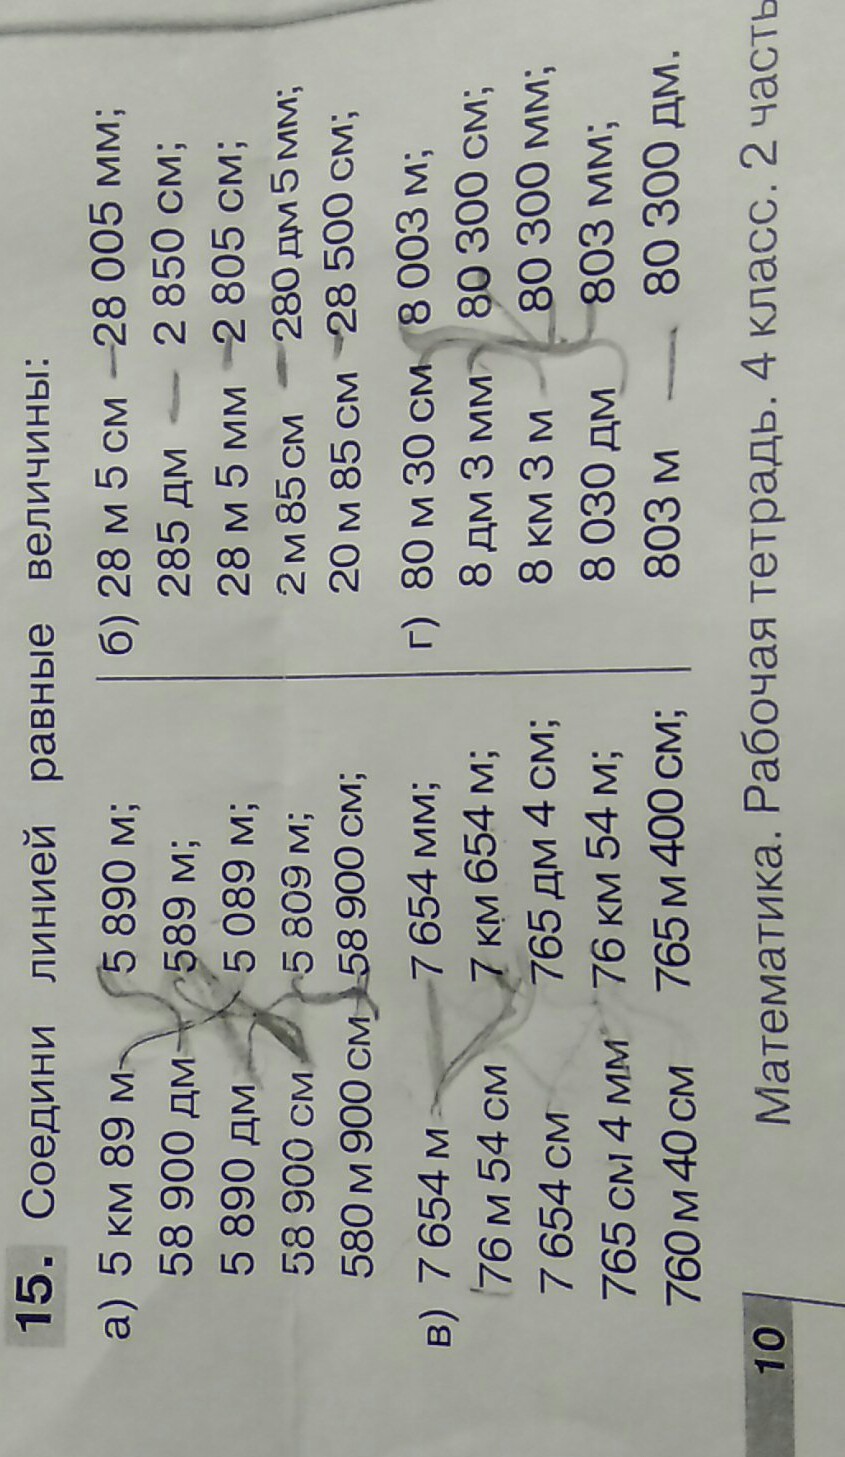 15. Соедини линией равные величины:
а) 5 км 89 м 5 890 м;
58 900 дм 589 м;
5 890 дм 5 089 м;
58 900 см 5 809 м;
580 м 900 см 58 900 см;
б) 28 м 5 см 28 005 мм;
285 дм 2 850 см;
28 м 5 мм 2 805 см;
2 м 85 см 280 дм 5 мм;
20 м 85 см 28 500 см;
в) 7 654 м 7 654 мм;
76 м 54 см 7 км 654 м;
7 654 см 765 дм 4 см;
765 см 4 мм 76 км 54 м;
760 м 40 см 765 м 400 см;
г) 80 м 30 см 8 003 м;
8 дм 3 мм 80 300 см;
8 км 3 м 80 300 мм;
8 030 дм 803 мм;
803 м 80 300 дм.
10 Математика. Рабочая тетрадь. 4 класс. 2 часть